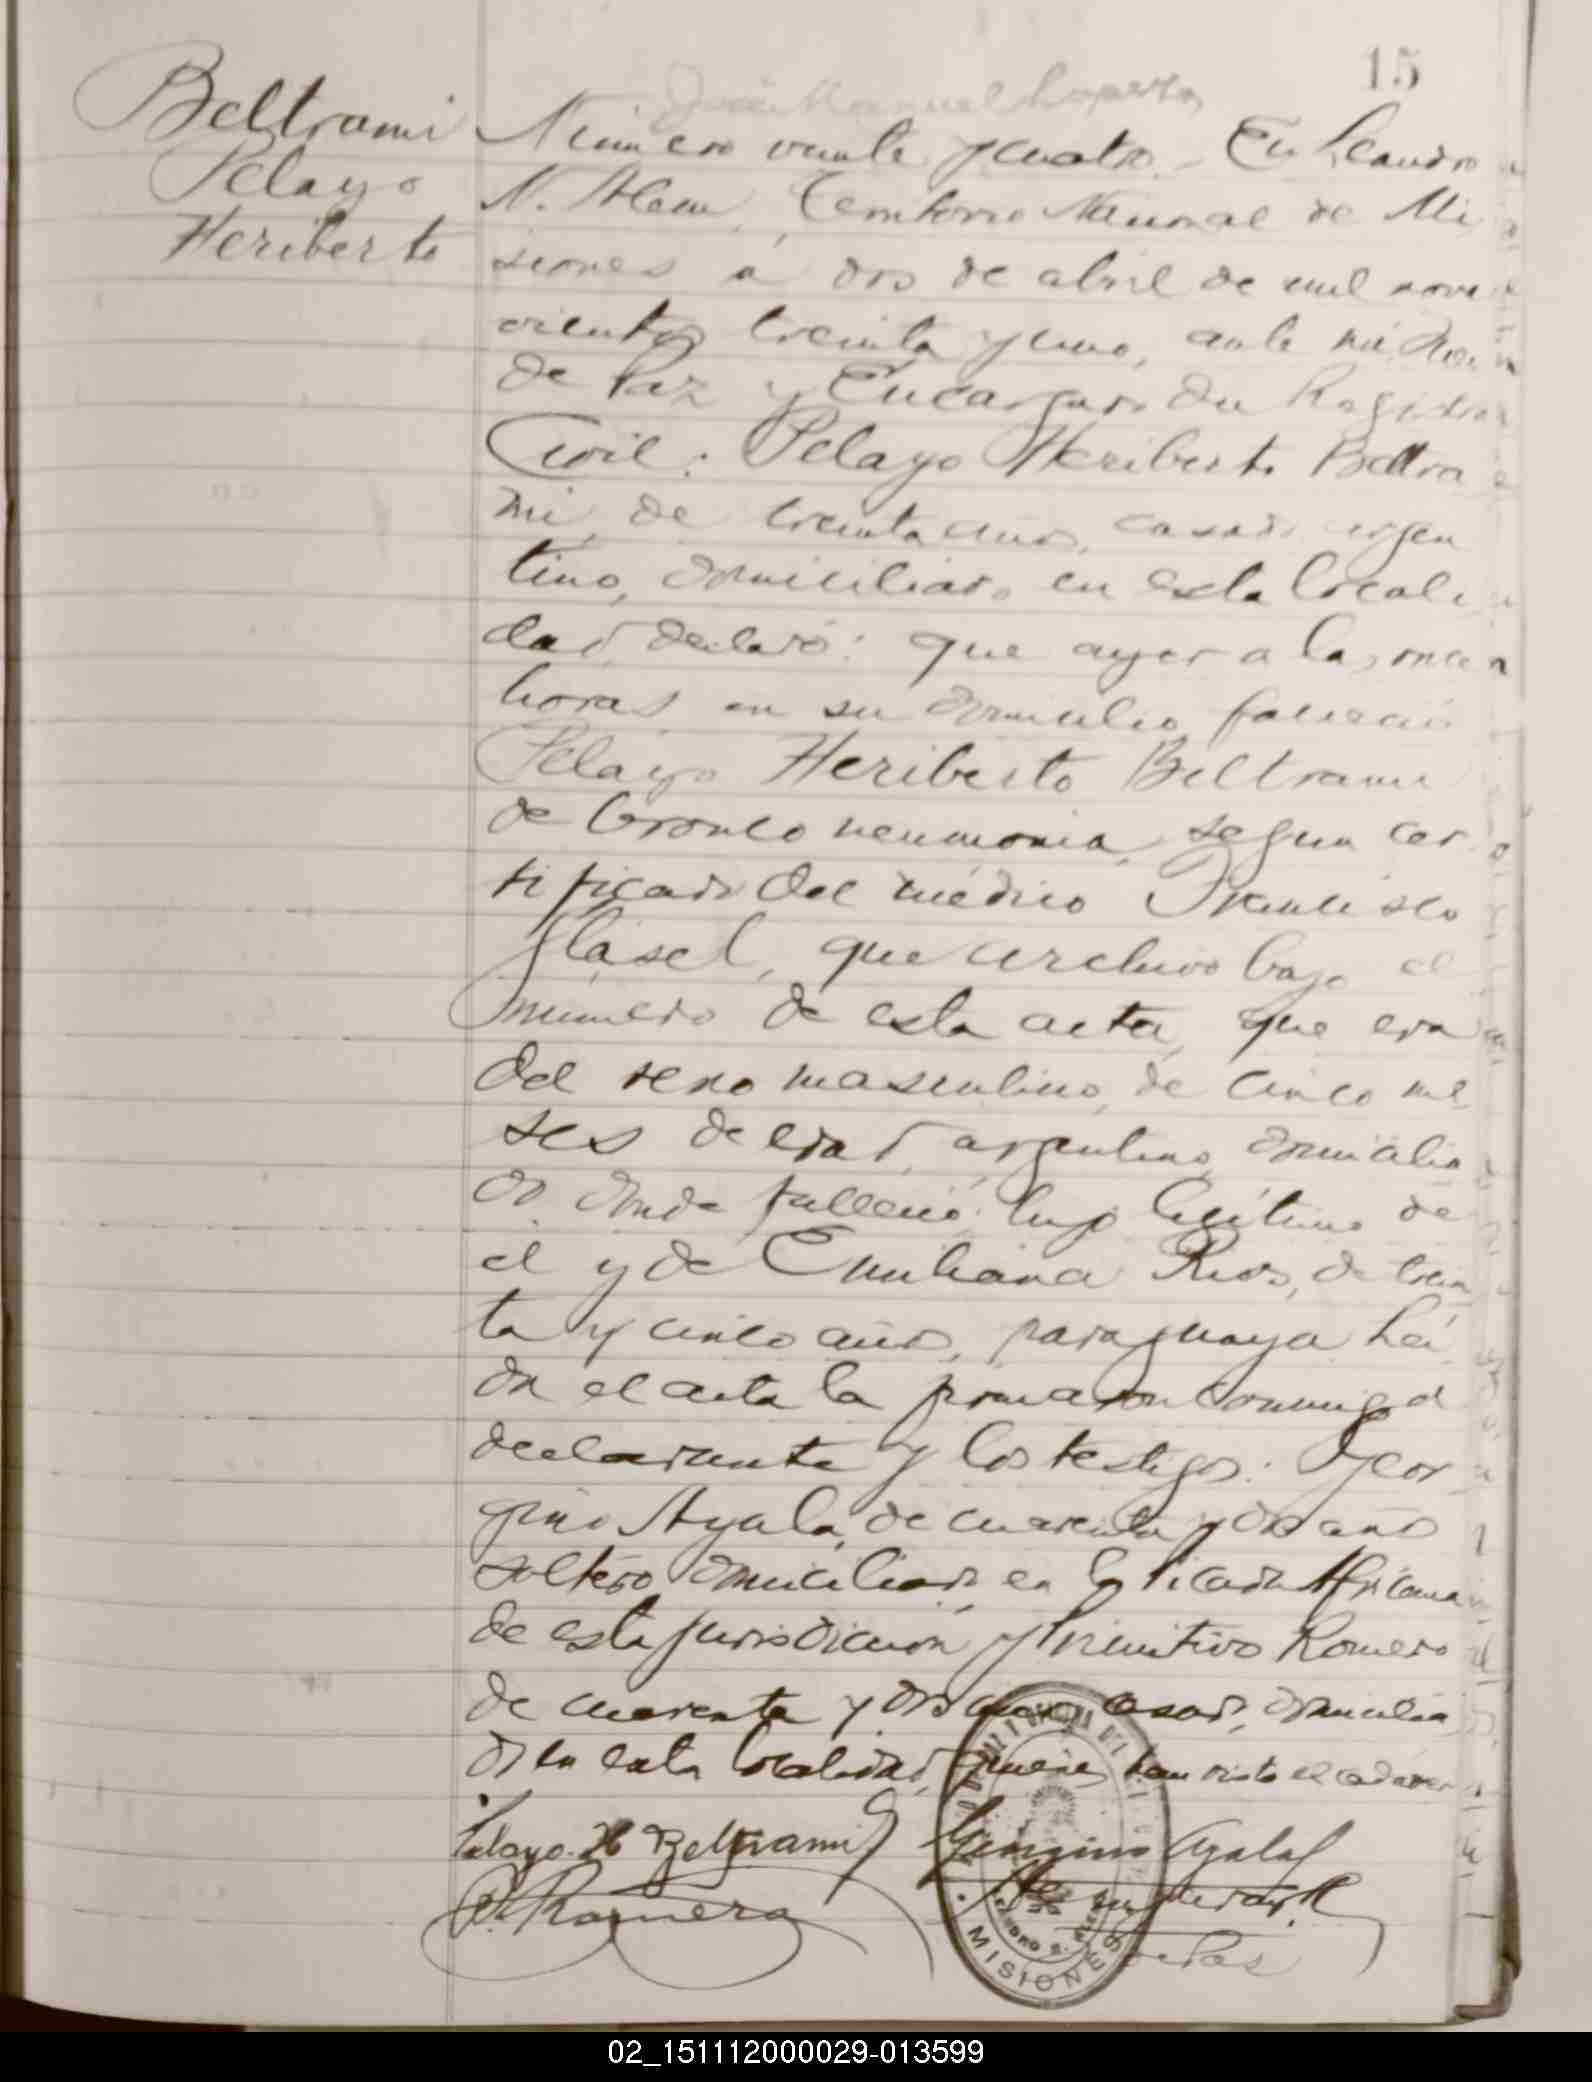 15
Beltrami
Pelayo
Heriberto
Número veinte y cuatro.- En Leandro
N. Alem, Territorio Nacional de Mi
siones a dos de abril de mil nove
cientos treinta y uno, ante mi, Juez
de Paz y Encargado del Registro
Civil: Pelayo Heriberto Beltra
mi, de treinta años, casado argen
tino, domiciliado en esta locali
dad, declaró: que ayer a las once
horas en su domicilio falleció
Pelayo Heriberto Beltrami
de bronco neumonia, segun cer
tificado del médico Francisco
Glasel, que archivo bajo el
número de esta acta, que era
del sexo masculino, de cinco me
ses de edad, argentino, domicilia
do donde falleció; hijo legítimo de
el y de Emiliana Rios, de trein
ta y cinco años, paraguaya Leí
da el acta la firmaron conmigo el
declarante y los testigos: Geor
gino Ayala, de cuarenta y dos años
soltero, domiciliado en la Picada Africana
de esta jurisdicción y Primitivo Romero
de cuarenta y dos años casado, domicilia
do en esta localidad, quienes han visto el cadáver
Pelayo H Beltrami
Georgino Ayala
P. Romero
de Paz
MISIONES
02_151112000029-013599